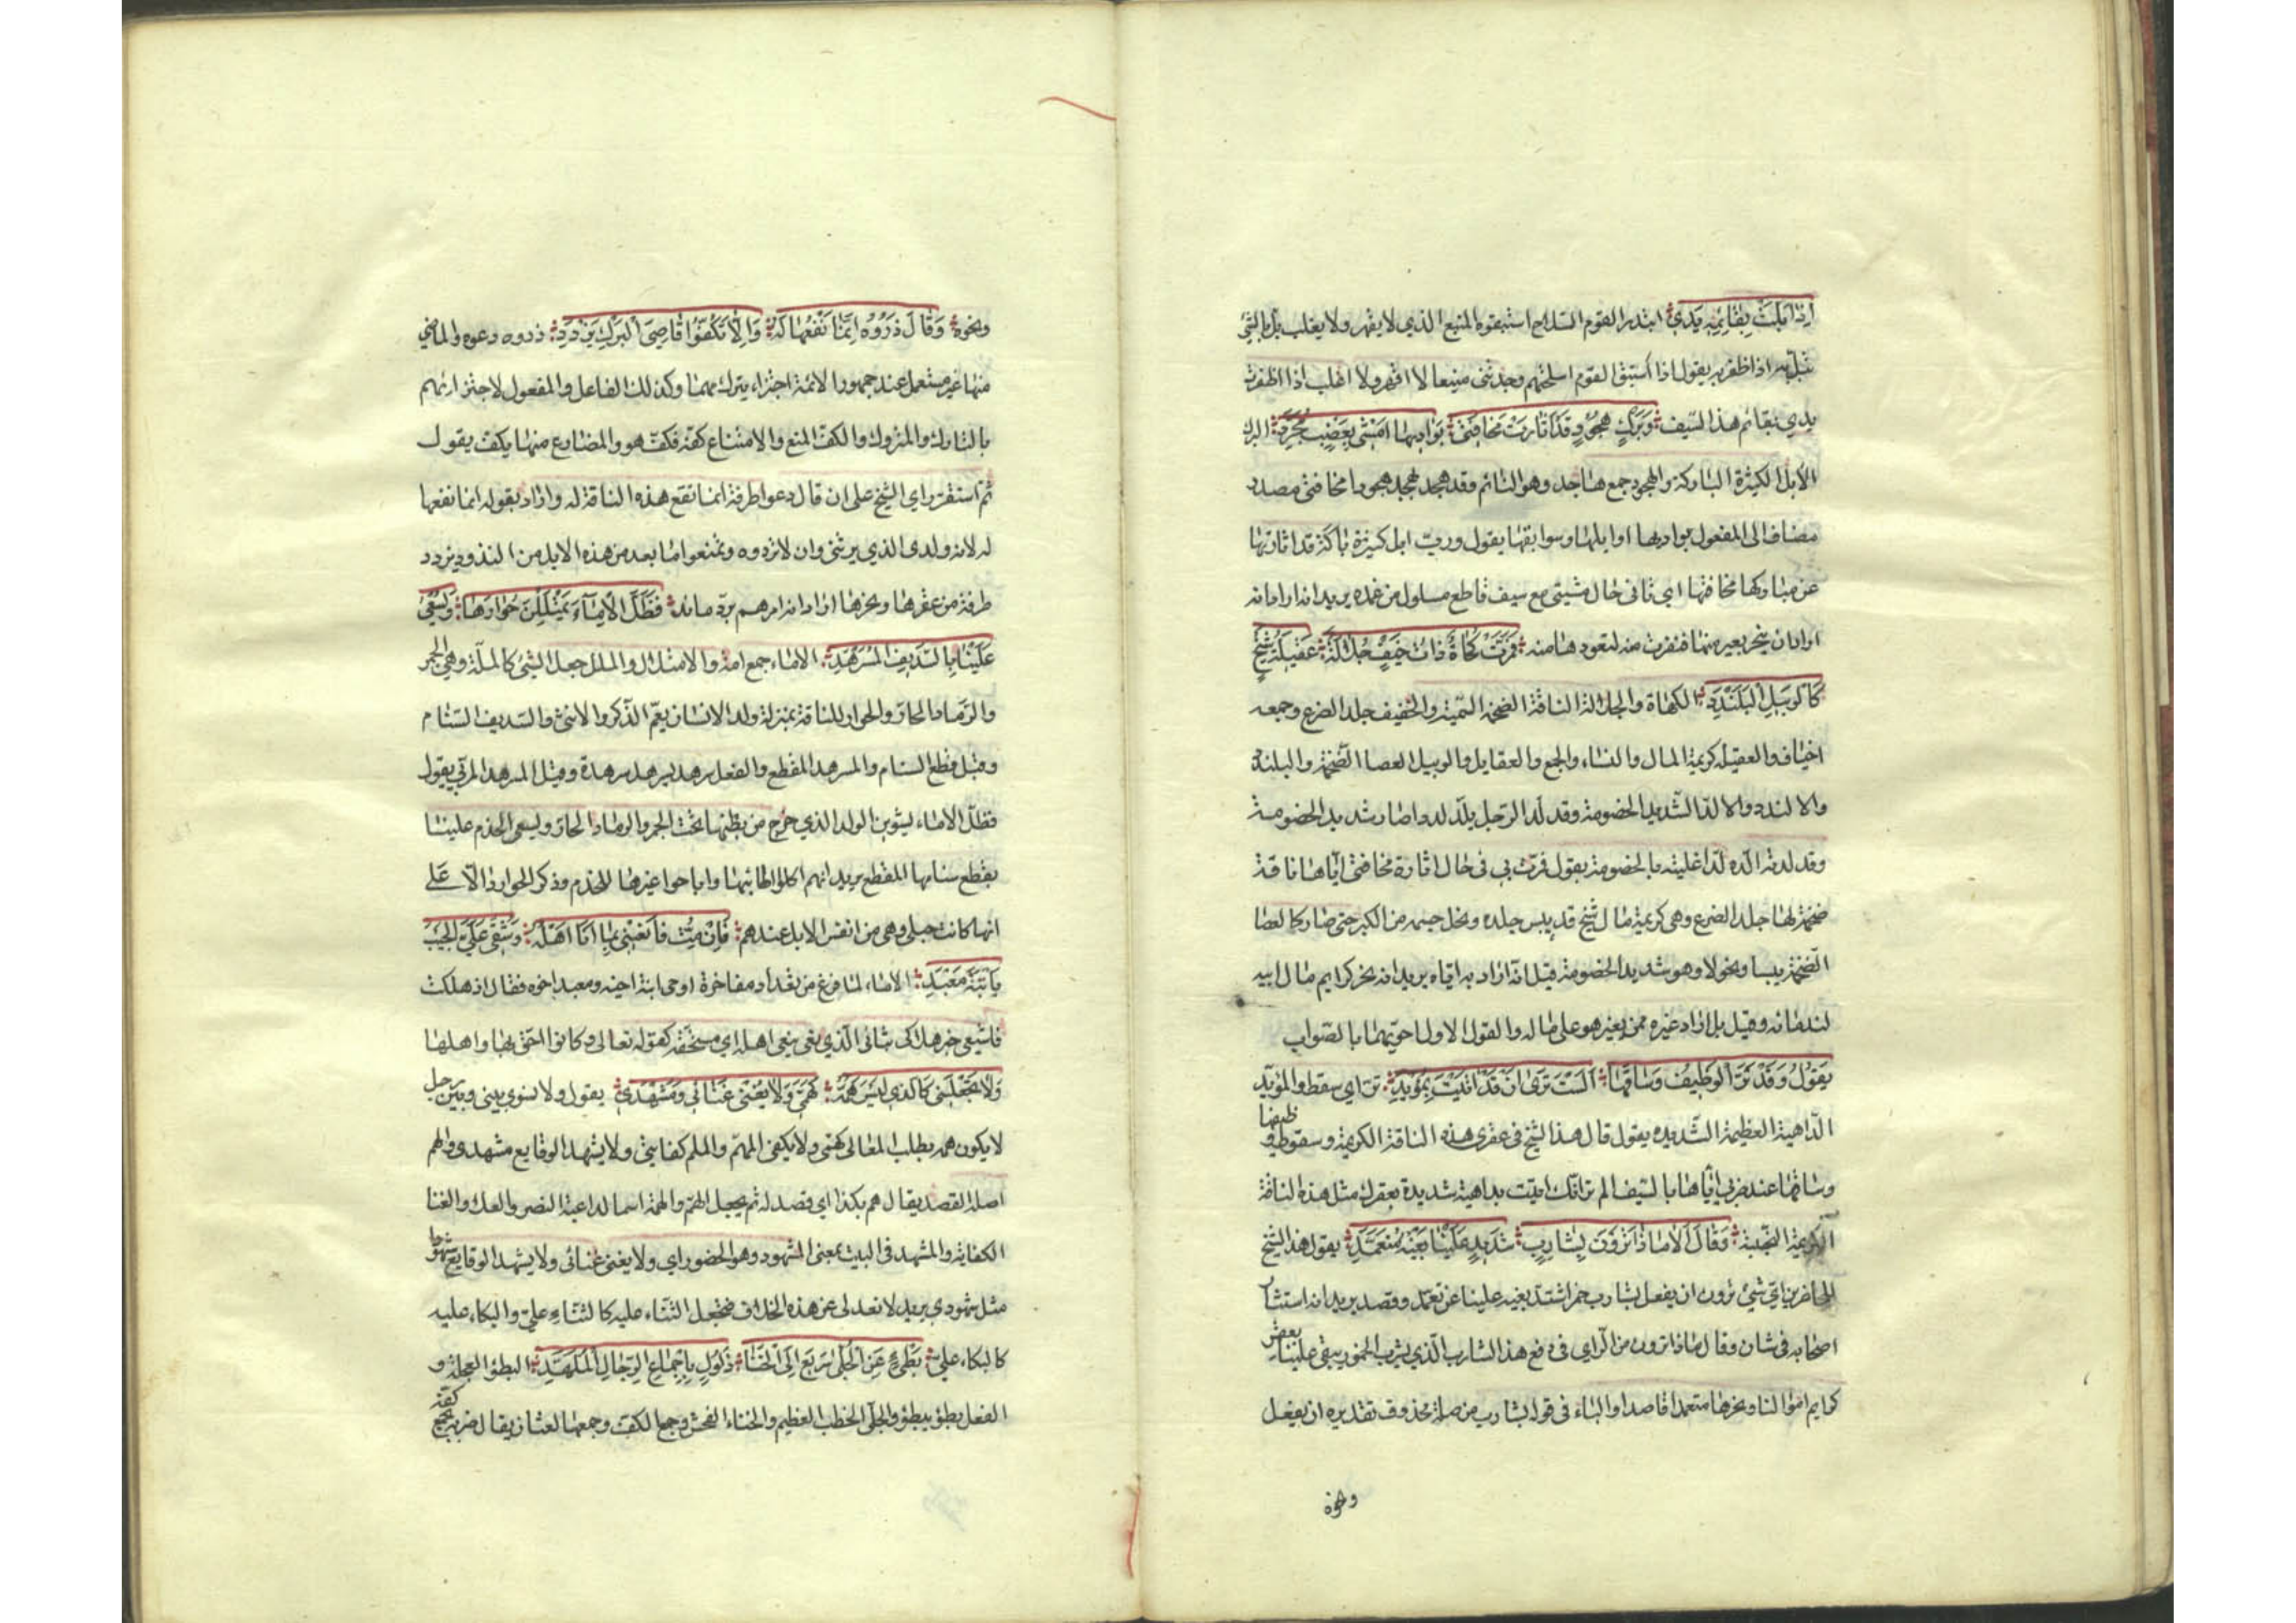 اِذَا بَلَّتْ بِقَائِمِهِ يَدِي ابتدر القوم السلاح استبقوه المنيع الذي لا يقهر ولا يغلب بل بالشئ
يبل به اذا ظفر به يقول اذا استبق القوم اسلحتهم وجدتنى منيعا لا اقهر ولا اغلب اذا ظفرت
يدي بقائم هذا السيف وَبَرْكٍ هُجُودٍ قَدْ اَثَارَتْ مَخَافَتِى بَوَادِيهَا اَمْشِى بِعَضْبٍ مُجَرَّدِ البرك
الابل الكثيرة الباركة والهجود جمع هاجد وهو النائم وقد هجد يهجد هجودا مخافتى مصدر
مضاف الى المفعول بواديها اوايلها وسوابقها يقول ورب ابل كثيرة باركة قد اثارتها
عن مباركها مخافتها اياى فى حال مشيتى مع سيف قاطع مسلول من غمده يريد انه اراد انه
اراد ان ينحر بعير منها فنفرت منه لتعودها منه فَمَرَّتْ كَهَاةٌ ذَاتُ خَيْفٍ جُلَالَةٌ عَقِيلَةُ شَيْخٍ
كَالْوَبِيلِ اَلَنْدَدِ الكهاة والجلالة الناقة الضخمة السمينة والخيف جلد الضرع وجمعه
اخياف والعقيلة كريمة المال والنساء والجمع والعقايل والوبيل العصا الضخمة والبلندد
والالندد والالد الشديد الخصومة وقد لد الرجل يلد لددا صار شديد الخصومة
وقد لدته الده لدا غلبته بالخصومة يقول فمرت بى فى حال اثارة مخافتى اياها ناقة
ضخمة لها جلد الضرع وهى كريمة مال شيخ قد يبس جلده ونحل جسمه من الكبر حتى صار كالعصا
الضخمة يبسا ونحولا وهو شديد الخصومة قيل انه اراد به اباه يريد انه نحر كرايم مال ابيه
لندمائه وقيل بل اراد غيره ممن يغير هو على ماله والقول الاول احريهما بالصواب
يَقُولُ وَقَدْ تَرَّ الْوَظِيفُ وَسَاقُهَا اَلَسْتَ تَرَى اَنْ قَدْ اَتَيْتَ بِمُؤْيِدِ تر اي سقط والمؤيد
الداهية العظيمة الشديدة يقول قال هذا الشيخ فى عقرى هذه الناقة الكريمة وسقوط وظيفها
وساقها عند ضربى اياها بالسيف الم تر انك اتيت بداهية شديدة بعقرك مثل هذه الناقة
الكريمة النجيبة وَقَالَ اَلَا مَاذَا تَرَوْنَ بِشَارِبٍ شَدِيدٍ عَلَيْنَا بَغْيُهُ مُتَعَمِّدِ يقول هذا الشيخ
للحاضرين اي شئ ترون ان يفعل بشارب خمر اشتد بغيه علينا عن تعمد وقصد يريد انه استشار
اصحابه فى شان وقال ماذا ترون من الرأي فى دفع هذا الشارب الذي يشرب الخمور يبغى علينا بعقر
كرايم اموالنا ونحرها متعمدا قاصدا والباء فى قوله بشارب من صلة محذوف تقديره ان يفعل
ونحوه
ونحوه وَقَالَ ذَرُوهُ اِنَّمَا نَفْعُهَا لَهُ وَاِلَّا تَكُفُّوا قَاصِيَ الْبَرْكِ يَزْدَدِ ذروه دعوه والماضى
منها غير مستعمل عند جمهور الائمة اجتزاء بترك منهما وكذلك الفاعل والمفعول لاجتزائهم
بالتارك والمتروك والكف المنع والامتناع كفه فكف هو والمضارع منها يكف يقول
ثم استقر راي الشيخ على ان قال دعوا طرفة انما نفع هذه الناقة له واراد بقوله انما نفعها
له لانه ولدى الذي يرثنى وان لا تردوه وتمنعوا ما بعد من هذه الابل من الندود يزدد
طرفة من عقرها ونحرها اراد انه امرهم برد ماند فَظَلَّ الْاِمَاءُ يَمْتَلِلْنَ حُوَارَهَا وَيُسْعَى
عَلَيْنَا بِالسَّدِيفِ الْمُسَرْهَدِ الاماء جمع امة والامتلال والملل جعل الشئ كالملة وهى الجمر
والرماد الحار والحوار للناقة بمنزلة ولد الانسان يعم الذكر والانثى والسديف السنام
وقيل قطع السنام والمسرهد المقطع والفعل سرهد يسرهد سرهدة وقيل المسرهد المربى يقول
فظل الاماء يشوين الولد الذي خرج من بطنها تحت الجمر والرماد الحار ويسعى الخدم علينا
بقطع سنامها المقطع يريد انهم اكلوا اطائبها واباحوا غيرها للخدم وذكر الحوار دالا على
انها كانت حبلى وهى من انفس الابل عندهم فَاِنْ مِتُّ فَانْعَيْنِى بِمَا اَنَا اَهْلُهُ وَشُقِّى عَلَيَّ الْجَيْبَ
يَا ابْنَةَ مَعْبَدِ الاماء لما فرغ من تعداد مفاخرة اوصى ابنة اخيه ومعبد اخوه فقال اذ هلكت
فاشيعى خبر هلاكى بثنائى الذي بغى ينعى اهله اي مستحقه كقوله تعالى وكانوا احق بها واهلها
وَلَا تَجْعَلِينِى كَالَّذِي لَيْسَ هَمُّهُ كَهَمِّى وَلَا يُغْنِى غَنَائِى وَمَشْهَدِي يقول ولا تسوى بينى وبين رجل
لا يكون همه بطلب المعالى كهمى ولا يكفى المهم والملم كفايتى ولا يشهد الوقايع مشهدى والهم
اصله القصد يقال هم بكذا اي قصد له ثم يجعل الهم والهمة اسما لداعية النفس والعلا والغنا
الكفاية والمشهد فى البيت بمعنى الشهود وهو الحضور اي ولا يغنى غنائى ولا يشهد الوقايع شهودا
مثل شهودي يريد لا تعدلى عن هذه الخلاف فتجعل الثناء عليه كالثناء علي والبكاء عليه
كالبكاء علي بَطِئٍ عَنِ الْجُلَّى سَرِيعٍ اِلَى الْخَنَا ذَلُولٍ بِاِجْمَاعِ الرِّجَالِ الْمُلَهَّدِ البطؤ العجلة و
الفعل بطؤ يبطؤ والجلى الخطب العظيم والخناء الفحش وجمع الكف وجمعها لغتان يقال ضربه بجمع كفه